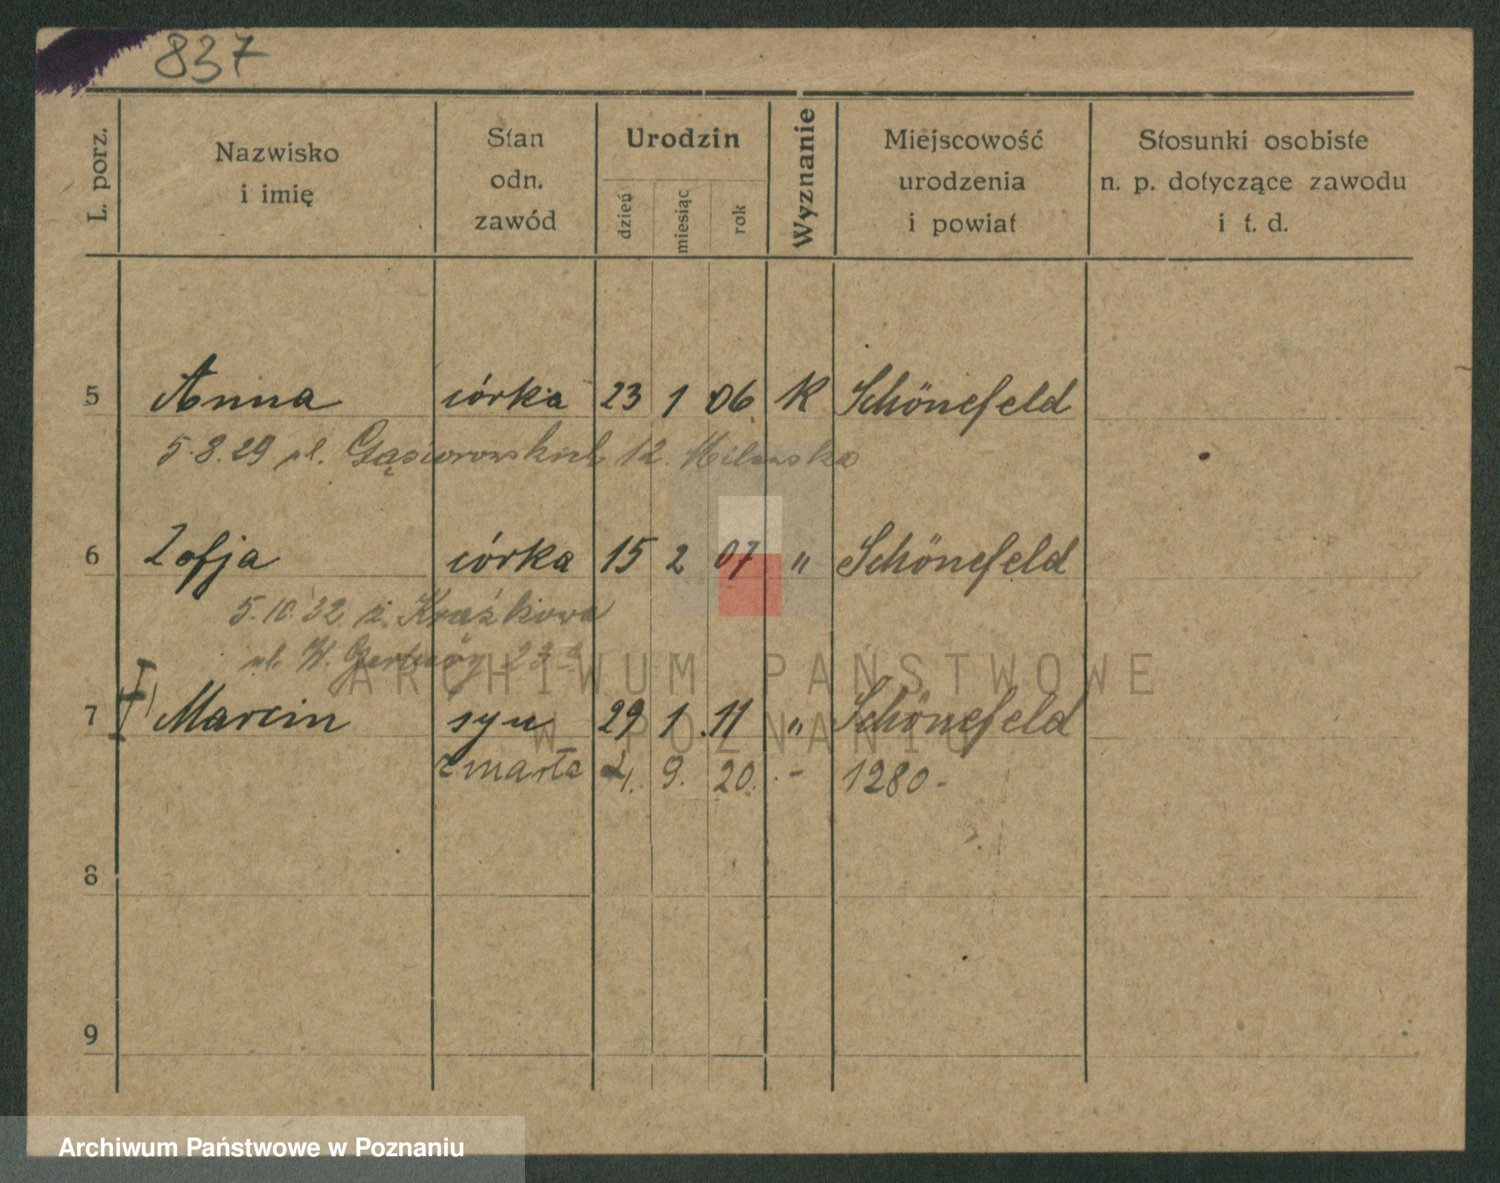 837
L. porz.
Nazwisko
i imię
Stan
odn.
zawód
Urodzin
dzień
miesiąc
rok
Wyznanie
Miejscowość
urodzenia
i powiat
Stosunki osobiste
n. p. dotyczące zawodu
i t. d.
5 Anna córka 23 1 06 K Schönefeld
5.8.29 ul. Gąsiorowskich 12
6 Zofja córka 15 2 07 " Schönefeld
5.10.32 z.
ul. W. 23
7 Marcin syn 29 1 11 " Schönefeld
zmarła 4. 9. 20. - 1280-
8
9
ARCHIWUM PAŃSTWOWE
W POZNANIU
Archiwum Państwowe w Poznaniu